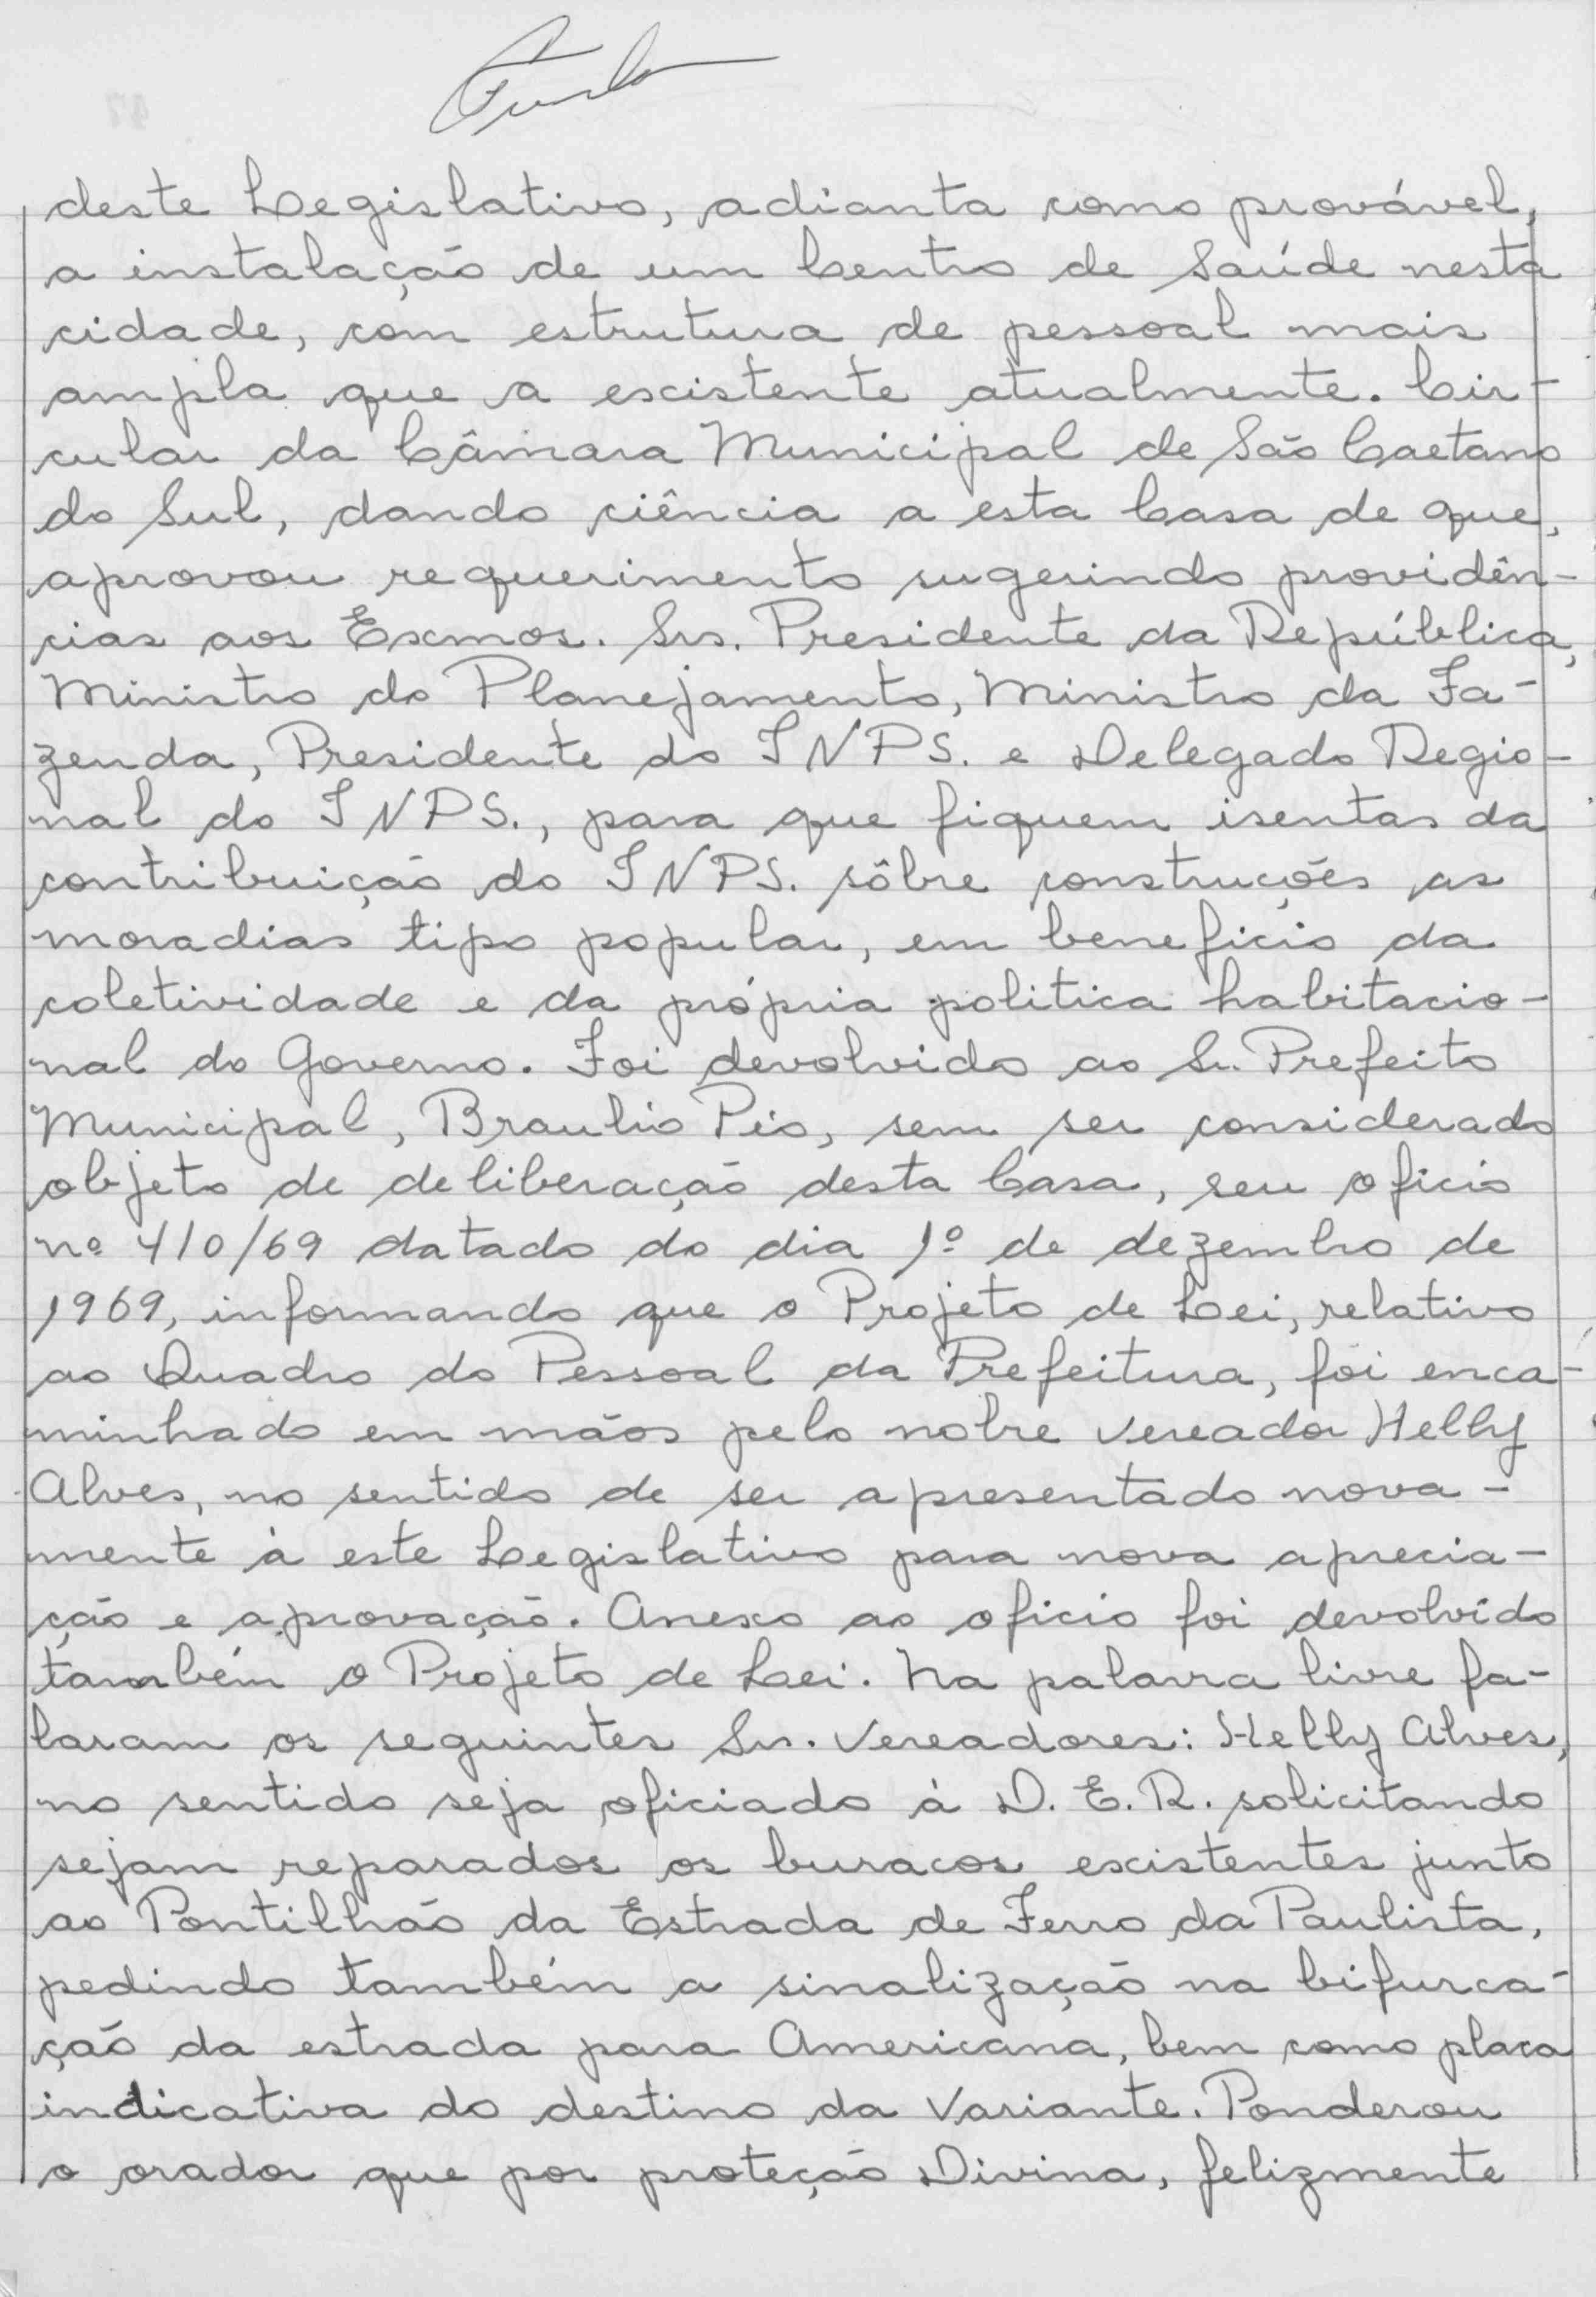 deste Legislativo, adianta como provável,
a instalação de um Centro de Saúde nesta
cidade, com estrutura de pessoal mais
ampla que a existente atualmente. Cir-
cular da Câmara Municipal de São Caetano
do Sul, dando ciência a esta Casa de que,
aprovou requerimento sugerindo providên-
cias aos Exmos. Srs. Presidente da República,
Ministro do Planejamento, Ministro da Fa-
zenda, Presidente do INPS. e Delegado Regio-
nal do INPS., para que fiquem isentas da
contribuição do INPS. sôbre construções as
moradias tipo popular, em beneficio da
coletividade e da própria politica habitacio-
nal do Governo. Foi devolvido ao Sr. Prefeito
Municipal, Braulio Pio, sem ser considerado
objeto de deliberação desta Casa, seu oficio
nº 410/69 datado do dia 1º de dezembro de
1969, informando que o Projeto de Lei, relativo
ao Quadro do Pessoal da Prefeitura, foi enca-
minhado em mãos pelo nobre vereador Helly
Alves, no sentido de ser apresentado nova-
mente à este Legislativo para nova aprecia-
ção e aprovação. Anexo ao oficio foi devolvido
também o Projeto de Lei. Na palavra livre fa-
laram os seguintes Srs. Vereadores: Helly Alves,
no sentido seja oficiado à D. E. R. solicitando
sejam reparados os buracos existentes junto
ao Pontilhão da Estrada de Ferro da Paulista,
pedindo também a sinalização na bifurca-
ção da estrada para Americana, bem como placa
indicativa do destino da Variante. Ponderou
o orador que por proteção Divina, felizmente